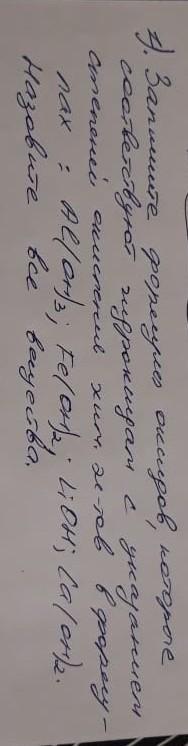 1). Запишите формулы оксидов, которые
соответствуют гидроксидам с указанием
степеней окисления хим. эл-тов в форму-
лах : Al(OH)3; Fe(OH)2; LiOH; Ca(OH)2.
Назовите все вещества.